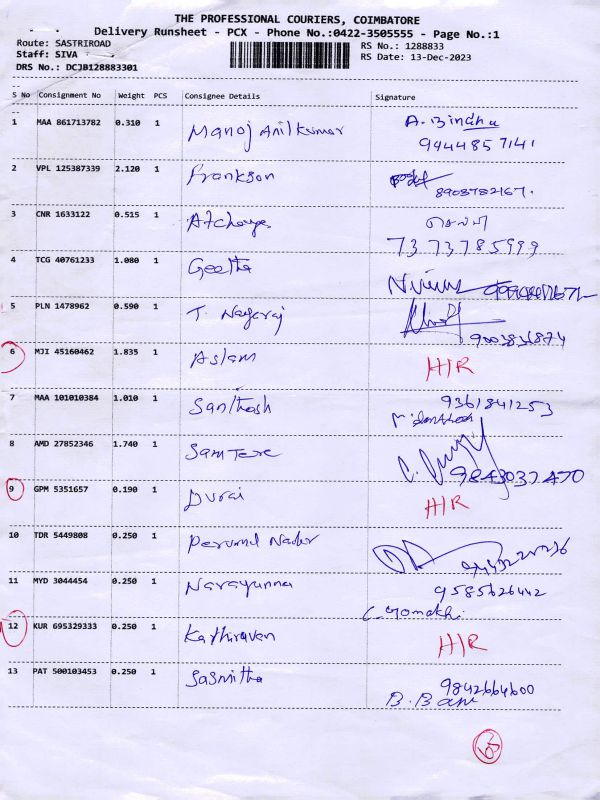 THE PROFESSIONAL COURIERS, COIMBATORE
Delivery Runsheet - PCX - Phone No.:0422-3505555 - Page No.:1
Route: SASTRIROAD
RS No.: 1288833
Staff: SIVA
RS Date: 13-Dec-2023
DRS No.: DCJB128883301
S No Consignment No Weight PCS Consignee Details Signature
1 MAA 861713782 0.310 1 Manoj Anilkumar A. Bindhu
9444857141
2 VPL 125387339 2.120 1 Frankson
8903782167.
3 CNR 1633122 0.515 1
7373785999
4 TCG 40761233 1.080 1 Geetha
5 PLN 1478962 0.590 1 T. Nagaraj
9003836874
6 MJI 45160462 1.835 1 Aslam H/R
7 MAA 101010384 1.010 1 Santhosh 9361841253
8 AMD 27852346 1.740 1
9843037470
9 GPM 5351657 0.190 1 Durai H/R
10 TDR 5449808 0.250 1 Perumal Nadar
11 MYD 3044454 0.250 1 Narayanna 9585626442
12 KUR 695329333 0.250 1 Kathiravan H/R
13 PAT 500103453 0.250 1 Sasmitha 9842664600